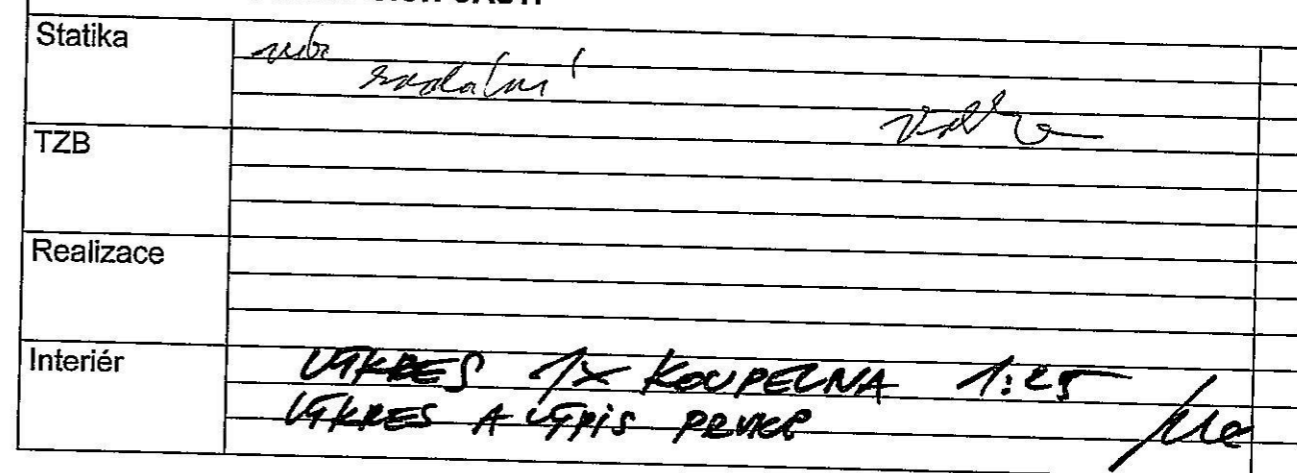 Statika
viz zadání
TZB
Realizace
Interiér
VÝKRES 1x KOUPELNA 1:25
VÝKRES A VÝPIS PRVKŮ